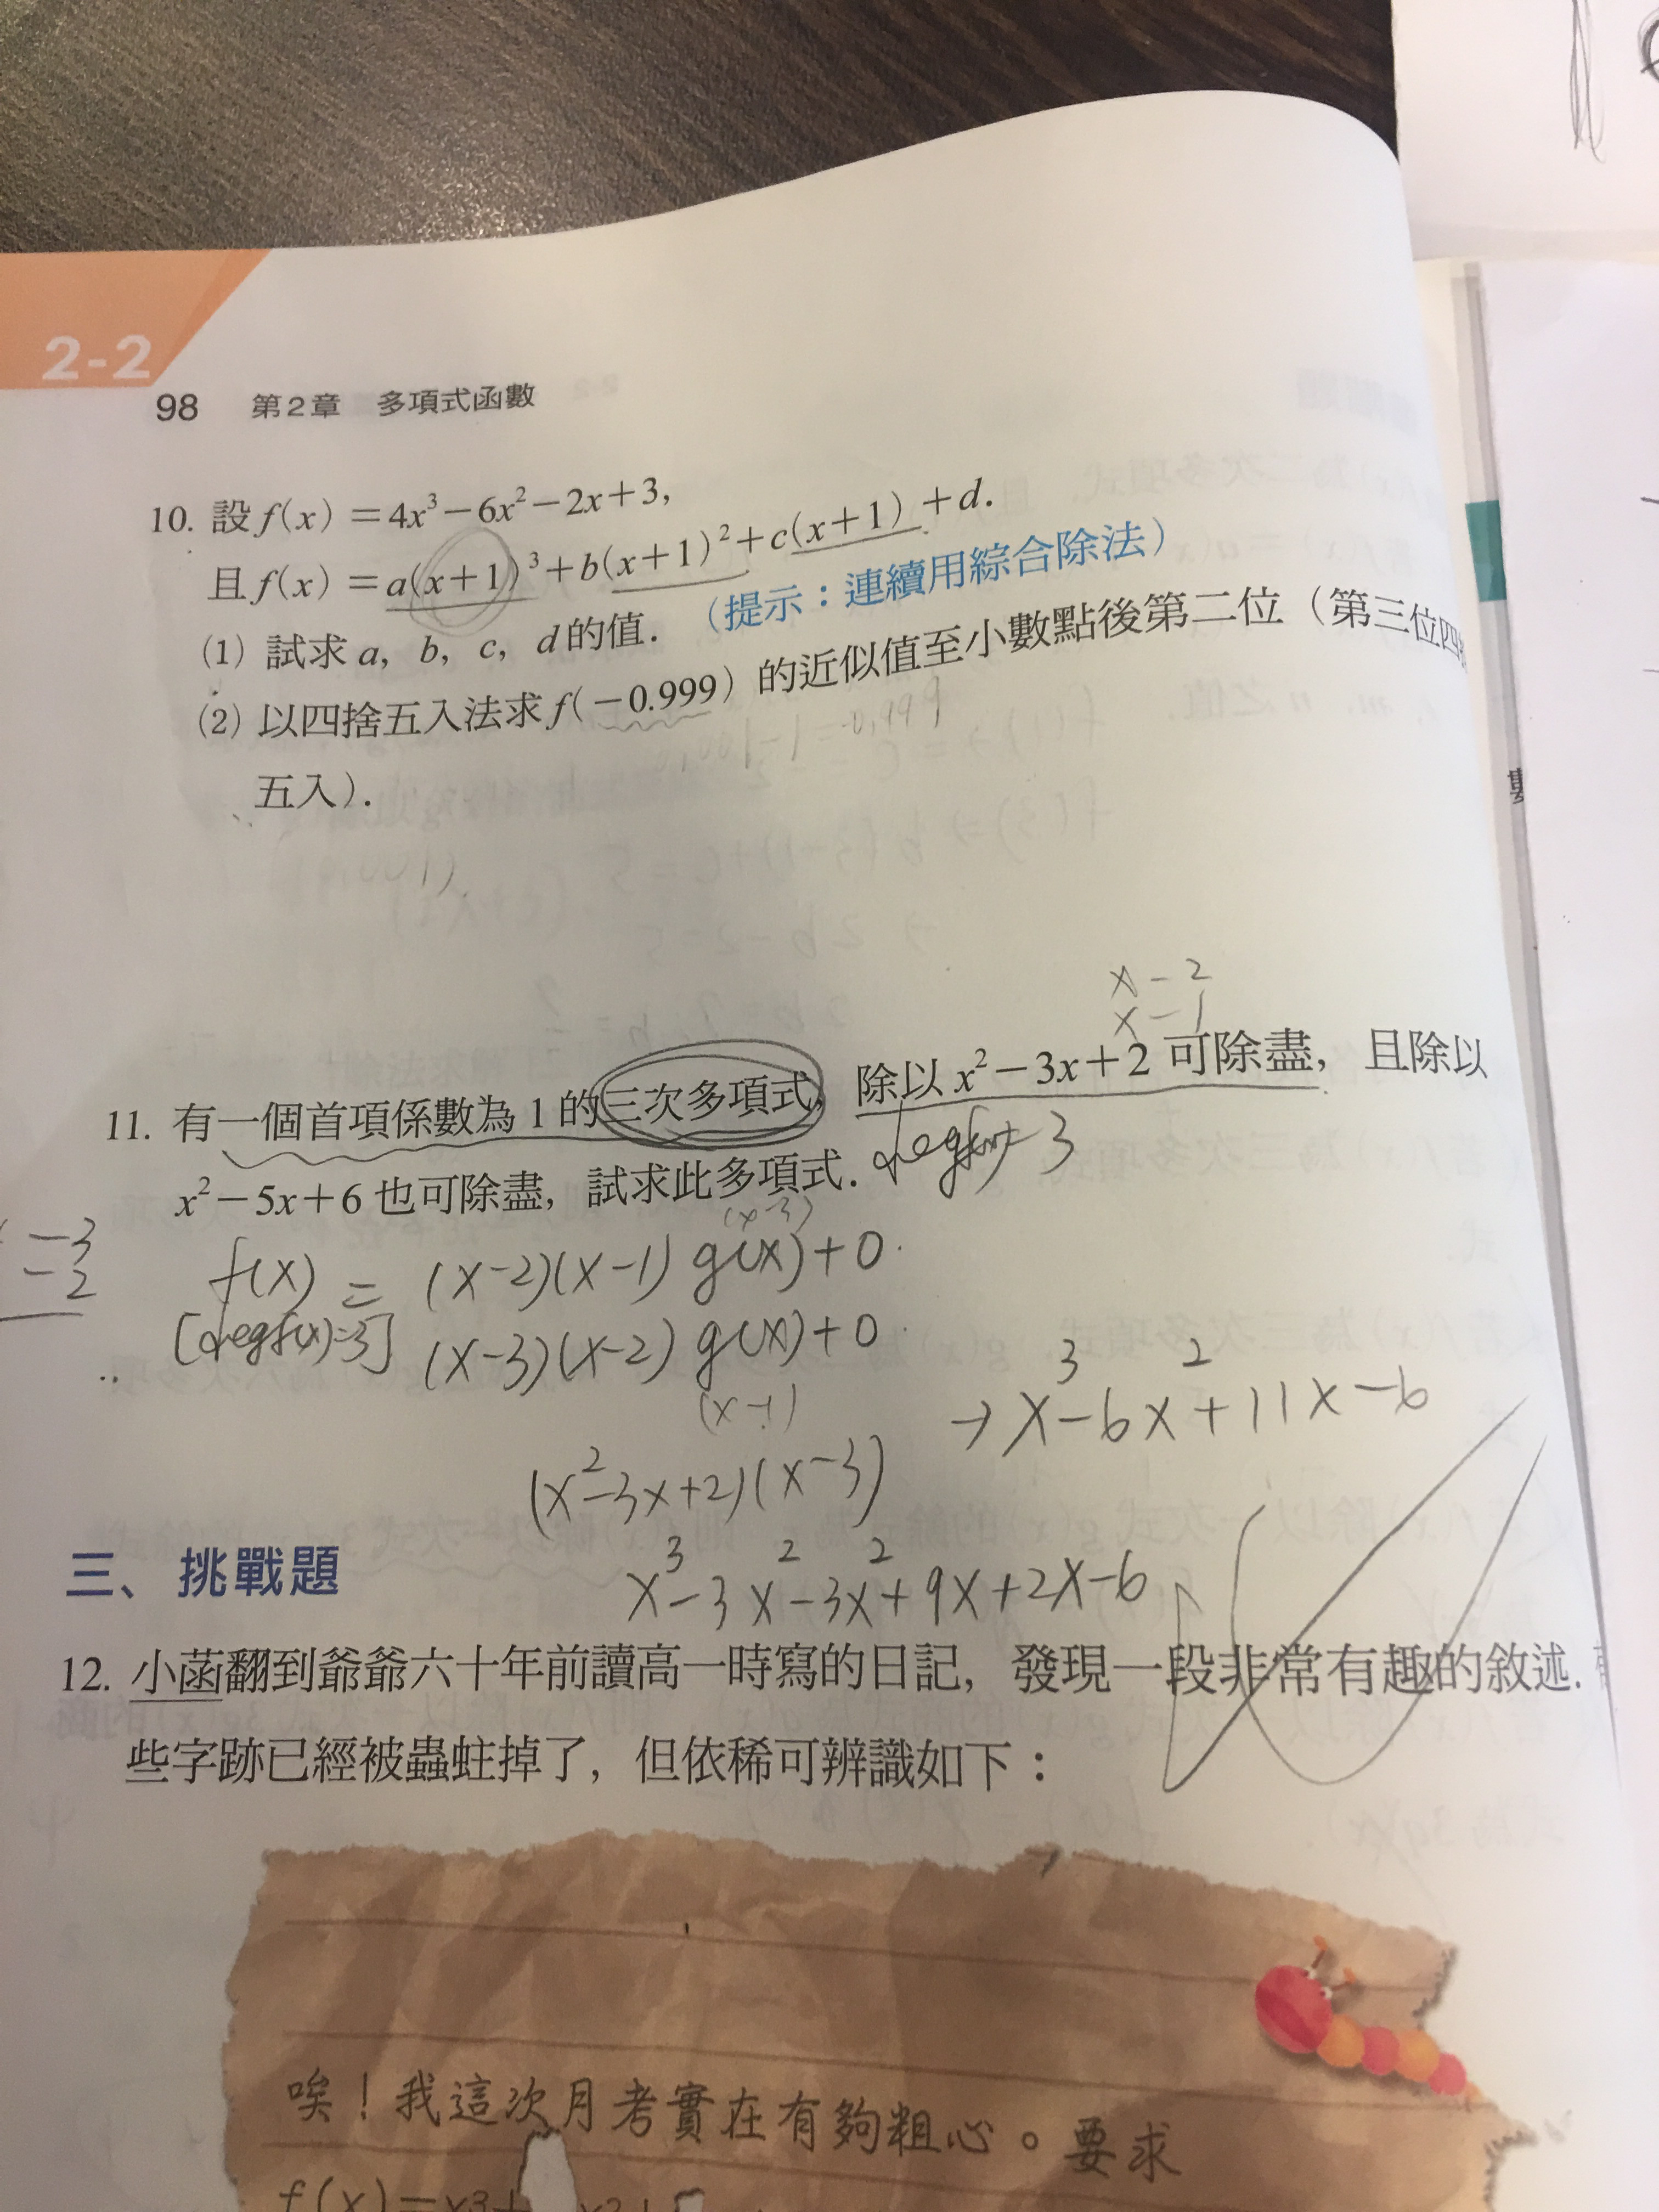 2-2
98 第2章 多項式函數
10. 設 f(x) =4x³-6x²-2x+3,
且 f(x) =a(x+1)³+b(x+1)²+c(x+1)+d.
(1) 試求 a, b, c, d 的值. (提示：連續用綜合除法)
(2) 以四捨五入法求 f(-0.999) 的近似值至小數點後第二位 (第三位四
五入).
x-2
x-1
11. 有一個首項係數為 1 的三次多項式, 除以 x²-3x+2 可除盡, 且除以
x²-5x+6 也可除盡, 試求此多項式. degf(x)=3
(x-3)
-3
-2
f(x) = (x-2)(x-1) g(x)+0
[degf(x)=3] (x-3)(x-2) g(x)+0
(x-1)
→ x³-6x²+11x-6
(x²-3x+2)(x-3)
x³-3x²-3x²+9x+2x-6
三、挑戰題
12. 小菡翻到爺爺六十年前讀高一時寫的日記, 發現一段非常有趣的敘述.
些字跡已經被蟲蛀掉了, 但依稀可辨識如下：
唉！我這次月考實在有夠粗心。要求
f(x)=x3+
數